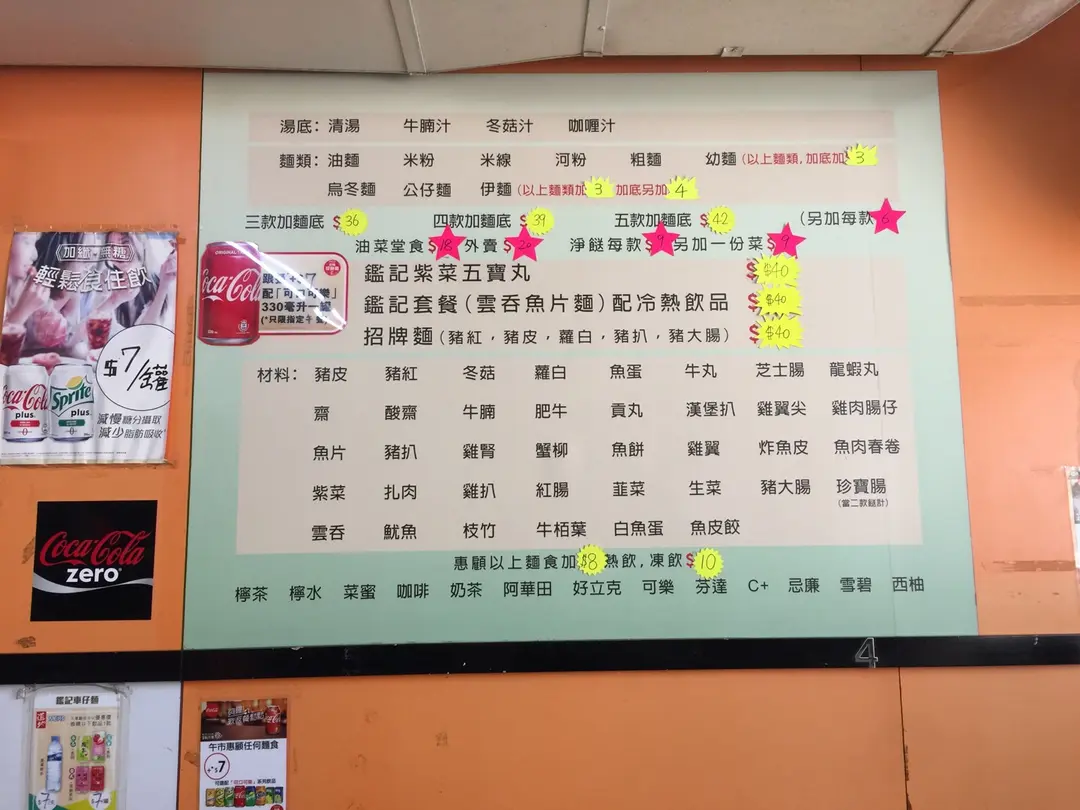 湯底: 清湯 牛腩汁 冬菇汁 咖喱汁
麵類: 油麵 米粉 米線 河粉 粗麵 幼麵 (以上麵類, 加底加 3
烏冬麵 公仔麵 伊麵 (以上麵類加 3 加底另加 4
三款加麵底 $36 四款加麵底 $39 五款加麵底 $42 (另加每款 6
油菜堂食 $18 外賣 $20 淨餸每款 $9 另加一份菜 $9
鑑記紫菜五寶丸 $40
鑑記套餐 (雲吞魚片麵) 配冷熱飲品 $40
招牌麵 (豬紅, 豬皮, 蘿白, 豬扒, 豬大腸) $40
材料: 豬皮 豬紅 冬菇 蘿白 魚蛋 牛丸 芝士腸 龍蝦丸
齋 酸齋 牛腩 肥牛 貢丸 漢堡扒 雞翼尖 雞肉腸仔
魚片 豬扒 雞腎 蟹柳 魚餅 雞翼 炸魚皮 魚肉春卷
紫菜 扎肉 雞扒 紅腸 韮菜 生菜 豬大腸 珍寶腸
(當二款餸計)
雲吞 魷魚 枝竹 牛栢葉 白魚蛋 魚皮餃
惠顧以上麵食加 $8 熱飲, 凍飲 $10
檸茶 檸水 菜蜜 咖啡 奶茶 阿華田 好立克 可樂 芬達 C+ 忌廉 雪碧 西柚
ORIGINAL
Coca-Cola
配「可口可樂」
330毫升一罐
加纖・無糖
輕鬆食住飲
$7/罐
Coca-Cola
plus
Sprite
plus
減慢糖分攝取
減少脂肪吸收
Coca-Cola
zero
4
鑑記車仔麵
午市惠顧任何麵食
+$7